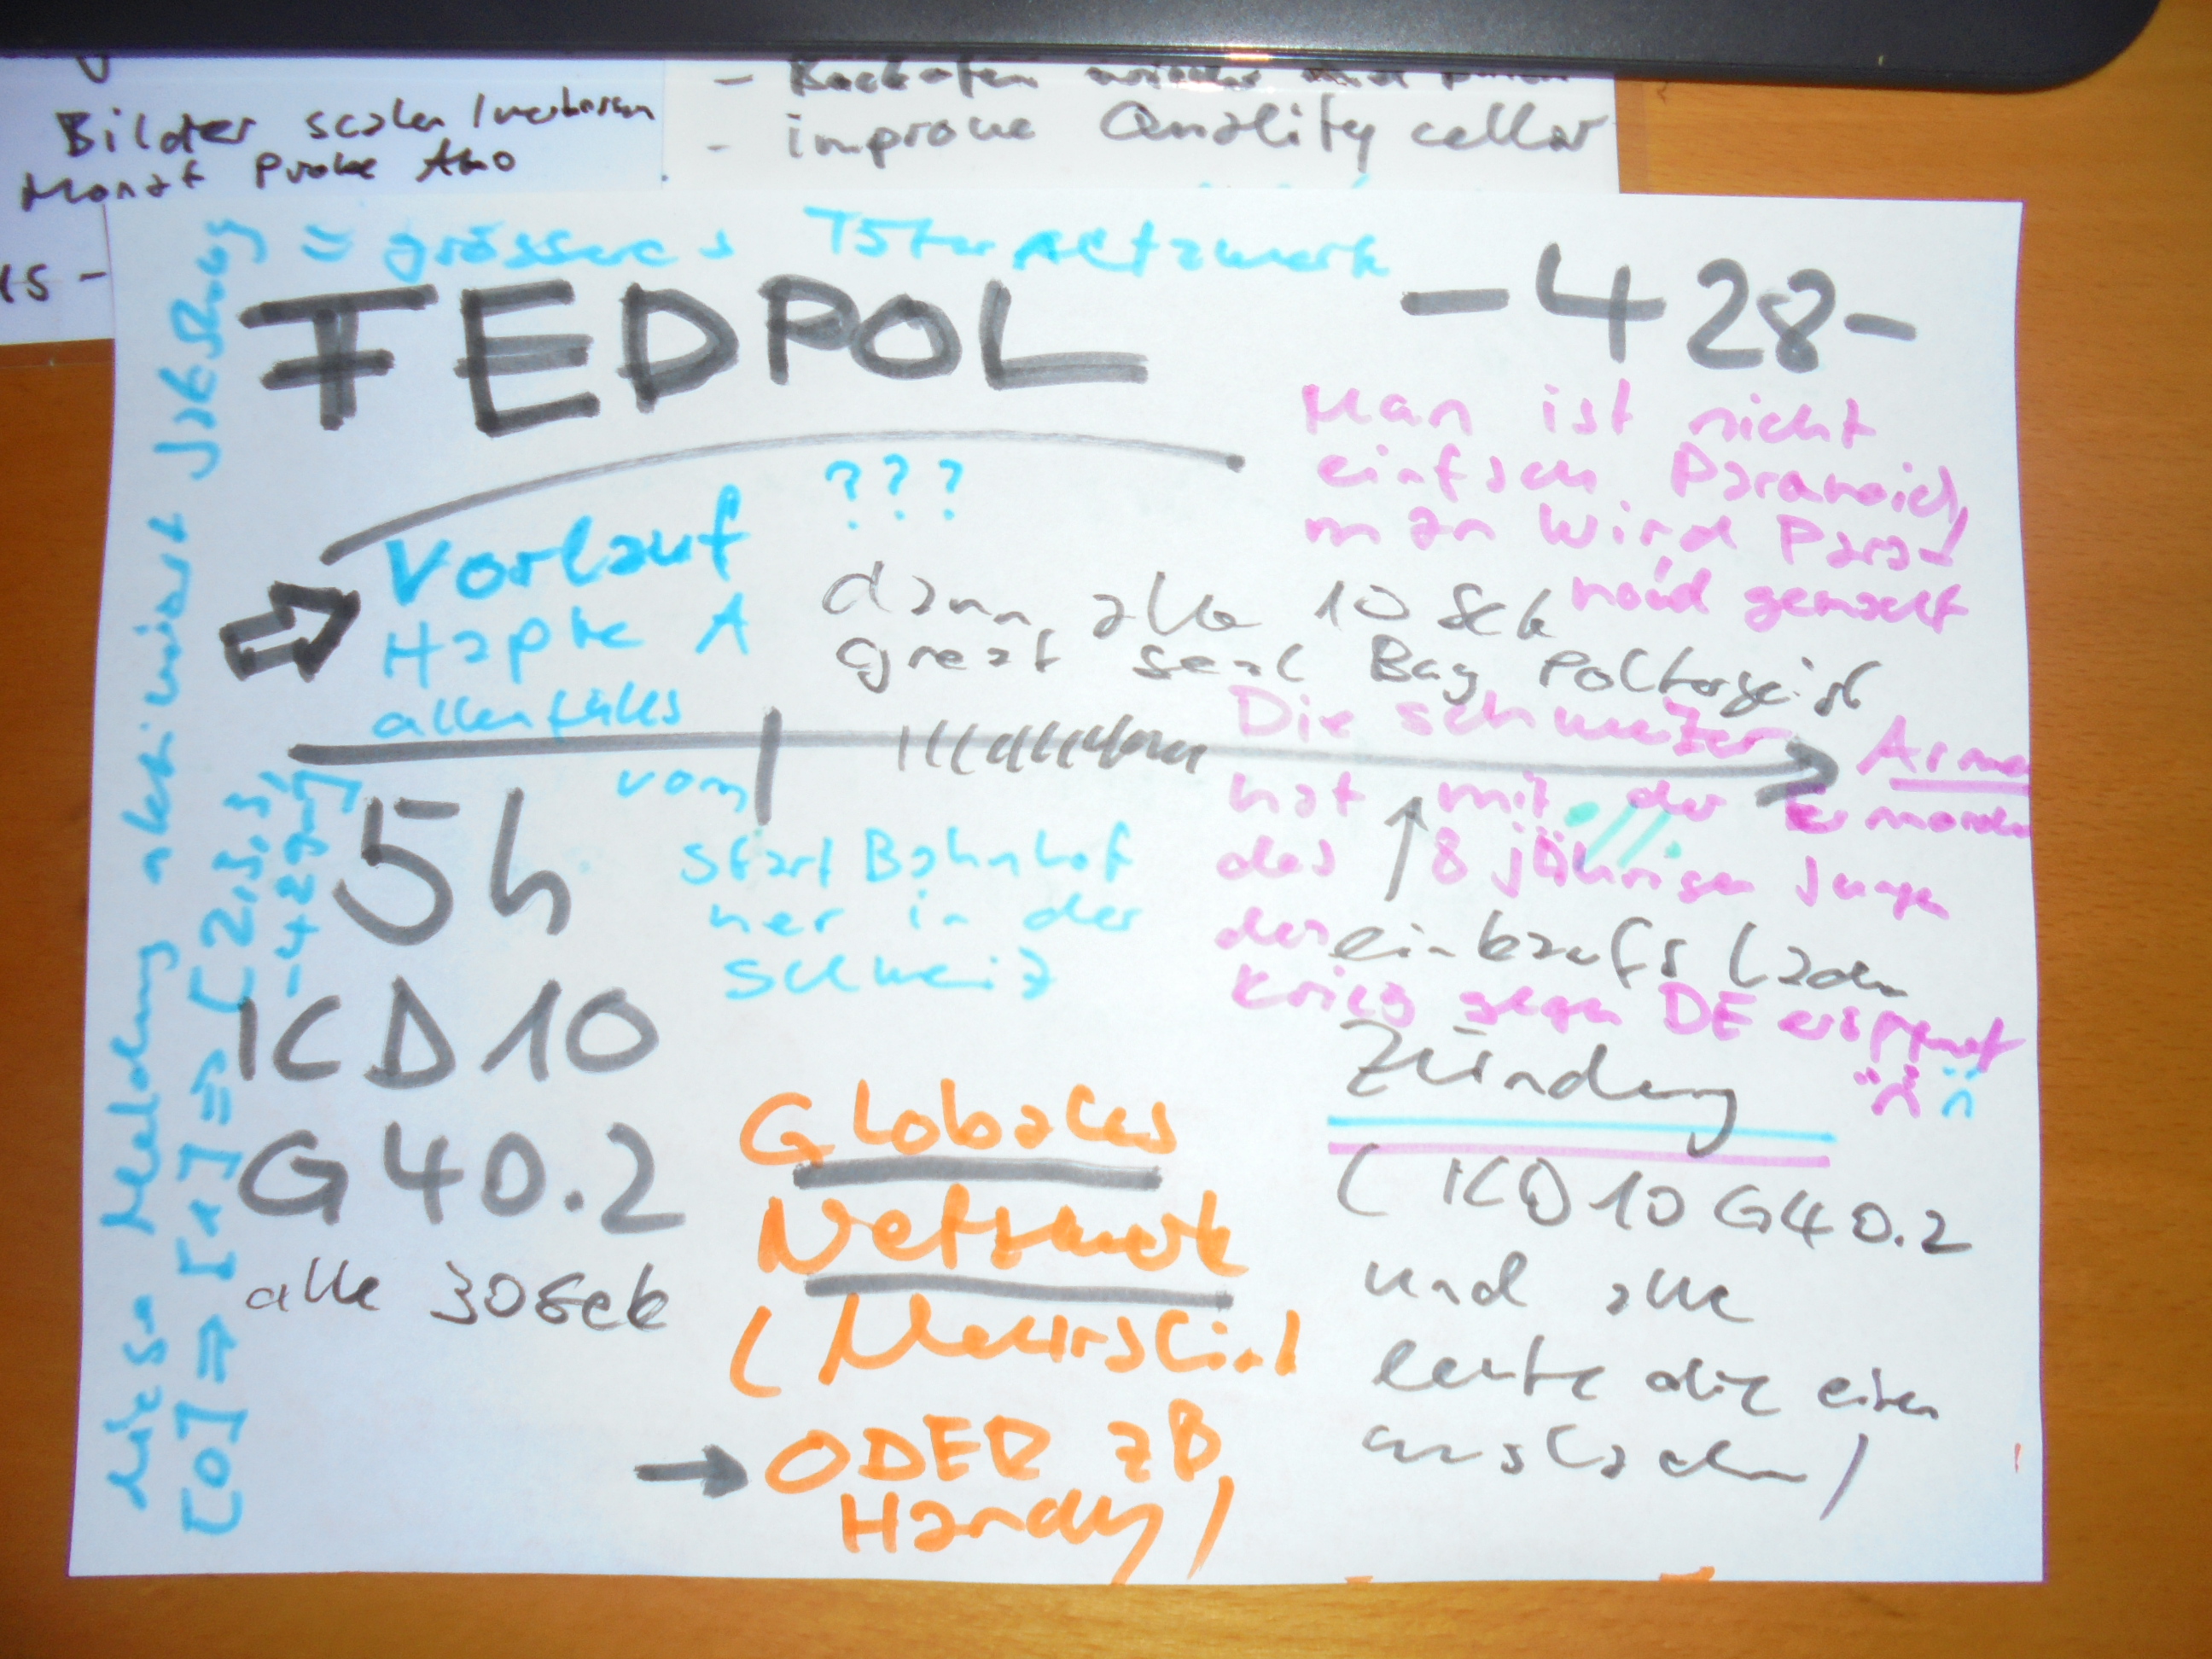 Bilder scalen
Monat Probe Abo
- improve Quality cellar
15 -
= grösseres Täternetzwerk
FEDPOL
- 428 -
Man ist nicht
einfach Paranoid,
man wird Para-
noid gemacht
???
Vorlauf
Hapke A
allenfalls
dann alle 10 Sek
great seal Bag Poltergeist
Die schweizer Armee
hat mit der Ermordu
des 8 jährigen Jungen
den
Krieg gegen DE eröffnet
vom
Start Bahnhof
her in der
Schweiz
5h
ICD10
G40.2
alle 30 Sek
einkaufsladen
Zündung
(ICD10 G40.2
und alle
leute die einen
auslachen)
Globales
Netzwerk
(Neuralink
ODER zB
Handy)
diese Meldung aktiviert
[0] => [1] => [2,3,3,
-428-]